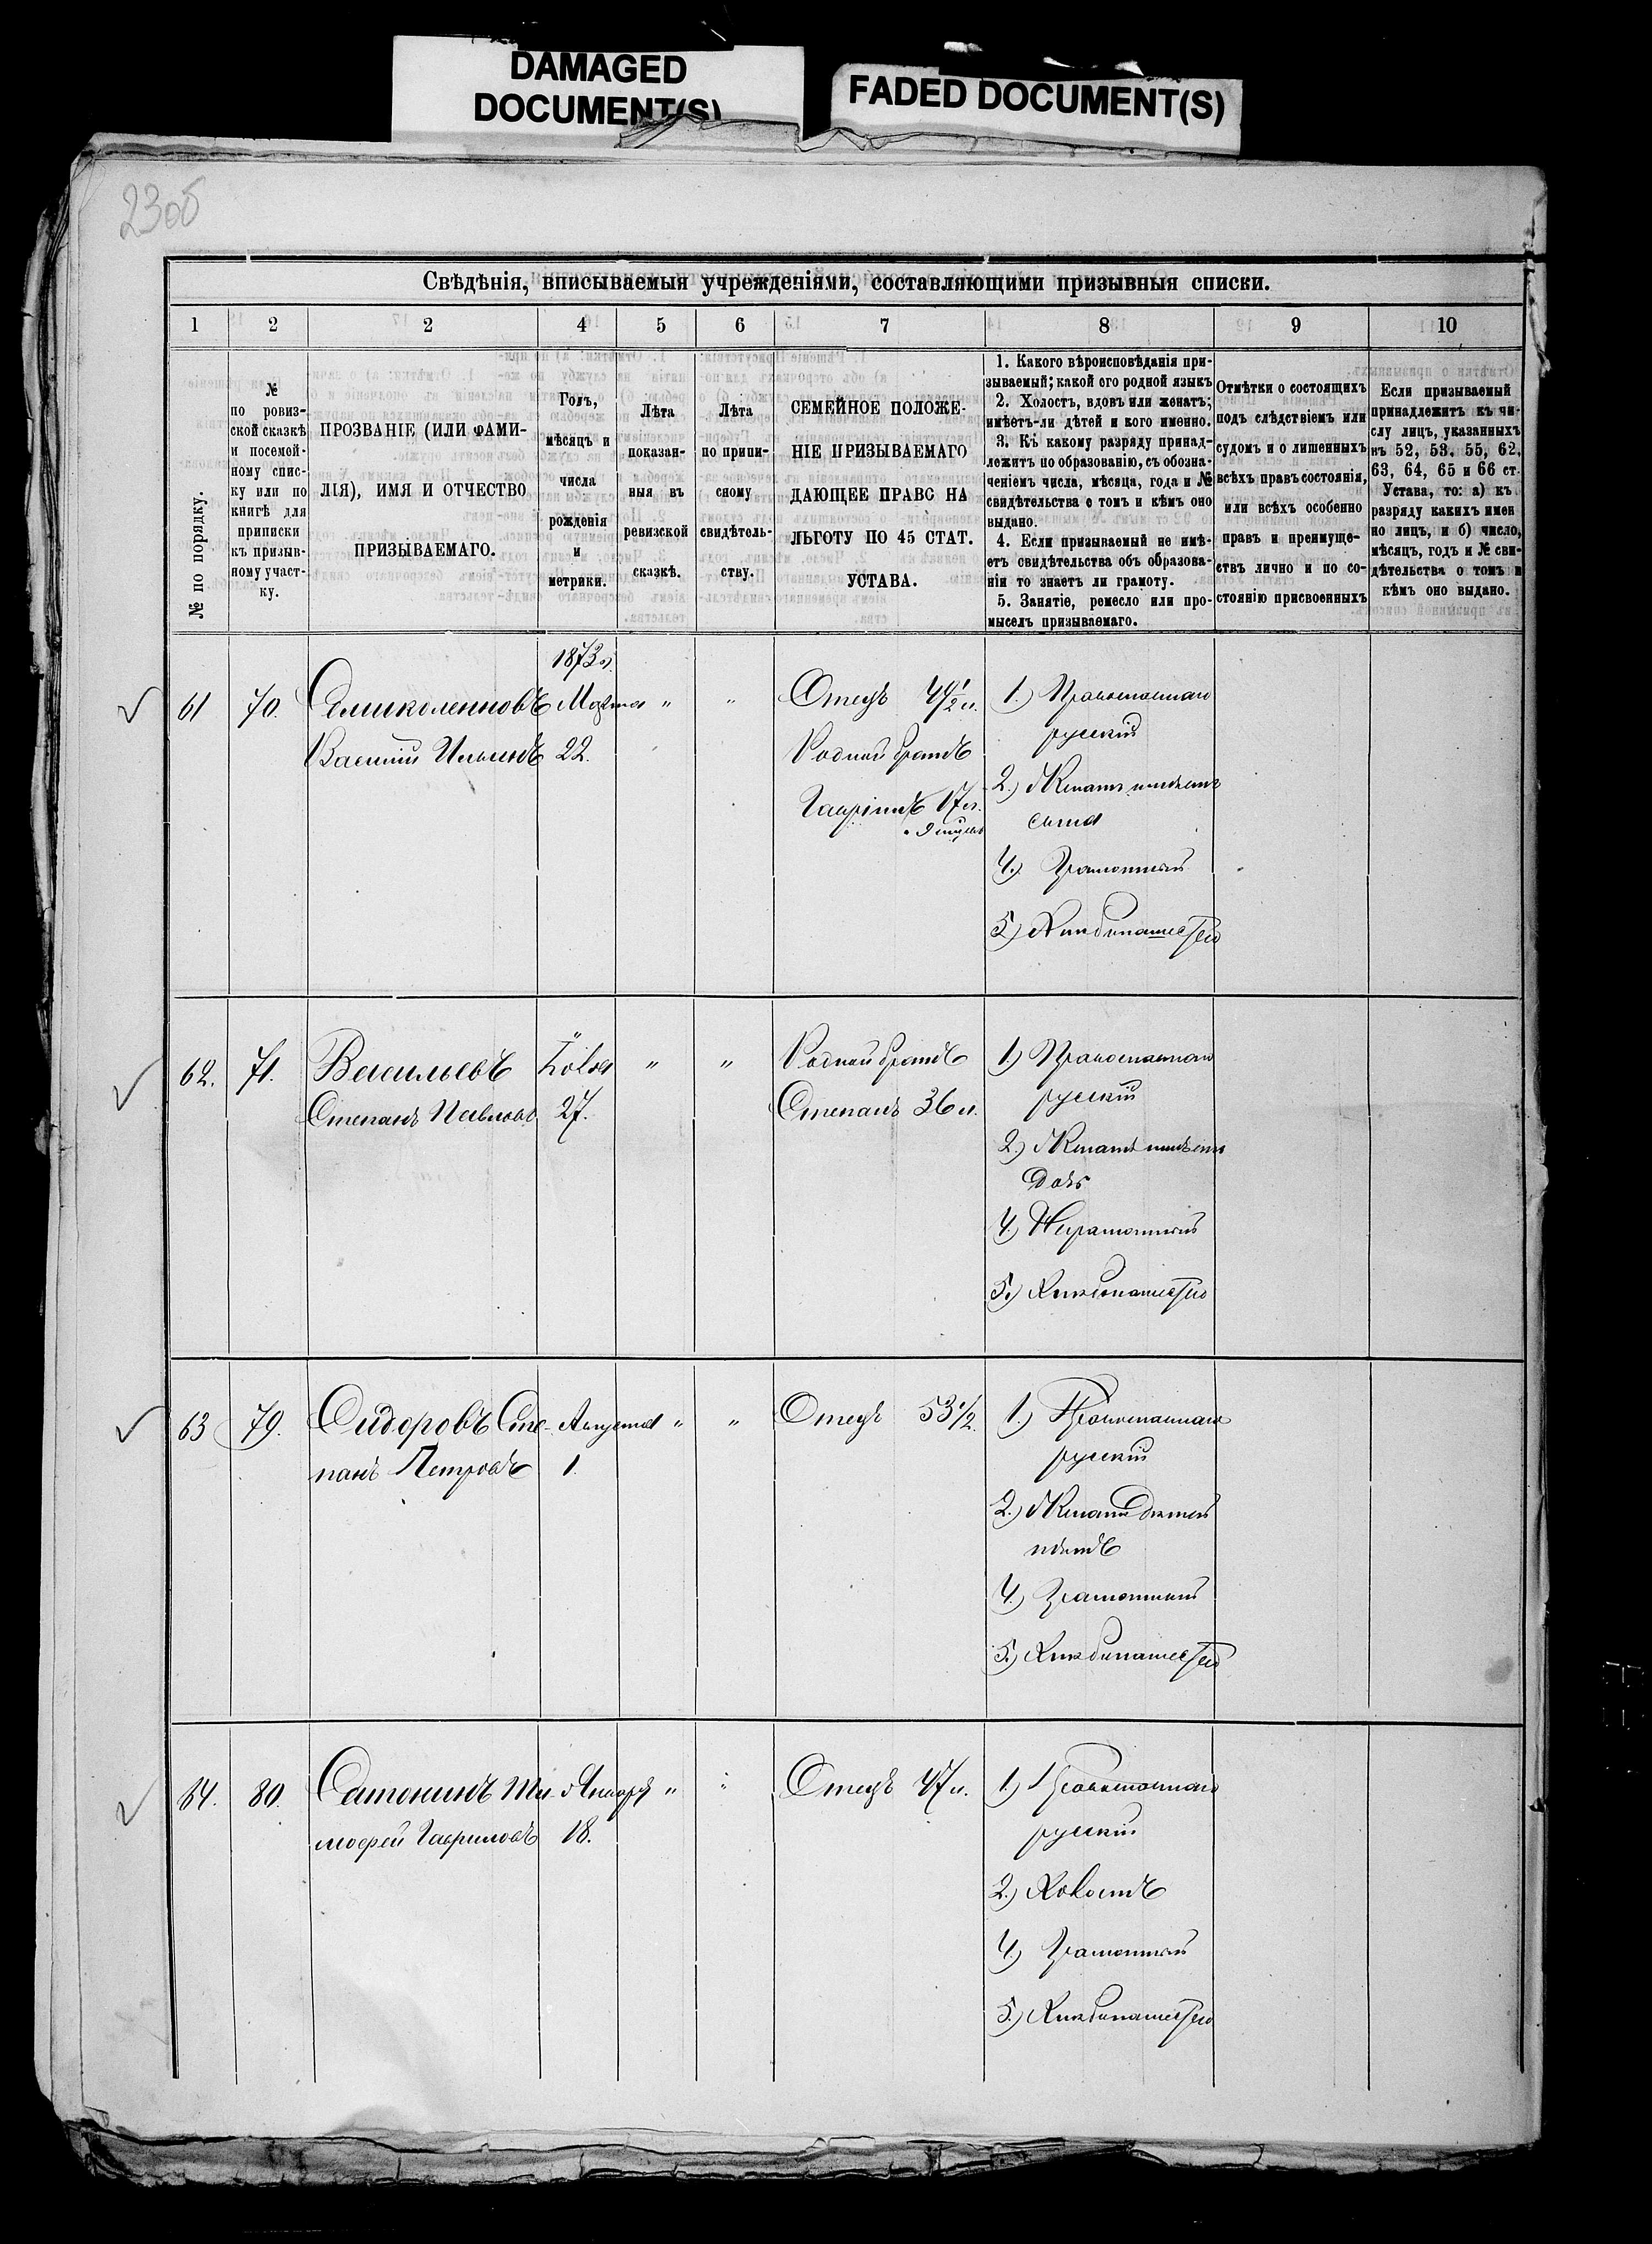 DAMAGED
DOCUMENT(S)
FADED DOCUMENT(S)
230б
Свѣдѣнія, вписываемыя учрежденіями, составляющими призывныя списки.
1 2 2 4 5 6 7 8 9 10
№ по порядку.
№
по ровиз-
ской сказкѣ
и посемей-
ному спис-
ку или по
книгѣ для
приписки
къ призыв-
ному участ-
ку.
ПРОЗВАНІЕ (ИЛИ ФАМИ-
ЛІЯ), ИМЯ И ОТЧЕСТВО
ПРИЗЫВАЕМАГО.
Годъ,
мѣсяцъ и
числа
рожденія
и
метрики.
Лѣта
показан-
ныя въ
ревизской
сказкѣ.
Лѣта
по припи-
сному
свидѣтель-
ству.
СЕМЕЙНОЕ ПОЛОЖЕ-
НІЕ ПРИЗЫВАЕМАГО
ДАЮЩЕЕ ПРАВО НА
ЛЬГОТУ ПО 45 СТАТ.
УСТАВА.
1. Какого вѣроисповѣданія при-
зываемый; какой его родной языкъ
2. Холостъ, вдовъ или женатъ;
имѣетъ-ли дѣтей и кого именно.
3. Къ какому разряду принад-
лежитъ по образованію, съ обозна-
ченіемъ числа, мѣсяца, года и №
свидѣтельства о томъ и кѣмъ оно
выдано.
4. Если призываемый не имѣ-
етъ свидѣтельства объ образова-
ніи то знаетъ ли грамоту.
5. Занятіе, ремесло или про-
мыселъ призываемаго.
Отмѣтки о состоящихъ
подъ слѣдствіемъ или
судомъ и о лишенныхъ
всѣхъ правъ состоянія,
или всѣхъ особенно
правъ и преимуще-
ствъ лично и по со-
стоянію присвоенныхъ
Если призываемый
принадлежитъ къ чи-
слу лицъ, указанныхъ
въ 52, 53, 55, 62,
63, 64, 65 и 66 ст.
Устава, то: а) къ
разряду какихъ имен
но лицъ, и б) число,
мѣсяцъ, годъ и № сви-
дѣтельства о томъ и
кѣмъ оно выдано.
1873 г.
61 70. Марта " "
Василій Ильинъ 22.
Отецъ 44 1/2 л.
Родной братъ
Гавріилъ 17 л.
1.) Православнаго
русскій
2.) Женатъ имѣетъ
сына
4.) Грамотный
5.) Хлѣбопашество
62. 71. Васильевъ Іюля " "
Степанъ Павловъ 27.
Родной братъ
Степанъ 36 л.
1.) Православнаго
русскій
2.) Женатъ имѣетъ
дочь
4.) Неграмотный
5.) Хлѣбопашество
63 79. Сидоровъ Сте- Августа " "
панъ Петровъ 1.
Отецъ 53 1/2.
1.) Православнаго
русскій
2.) Женатъ дѣтей
нѣтъ
4.) Грамотный
5.) Хлѣбопашество
64. 80. Сатонинъ Ти- Января " "
мофей Гавриловъ 18.
Отецъ 47 л.
1.) Православнаго
русскій
2.) Холостъ
4.) Грамотный
5.) Хлѣбопашество